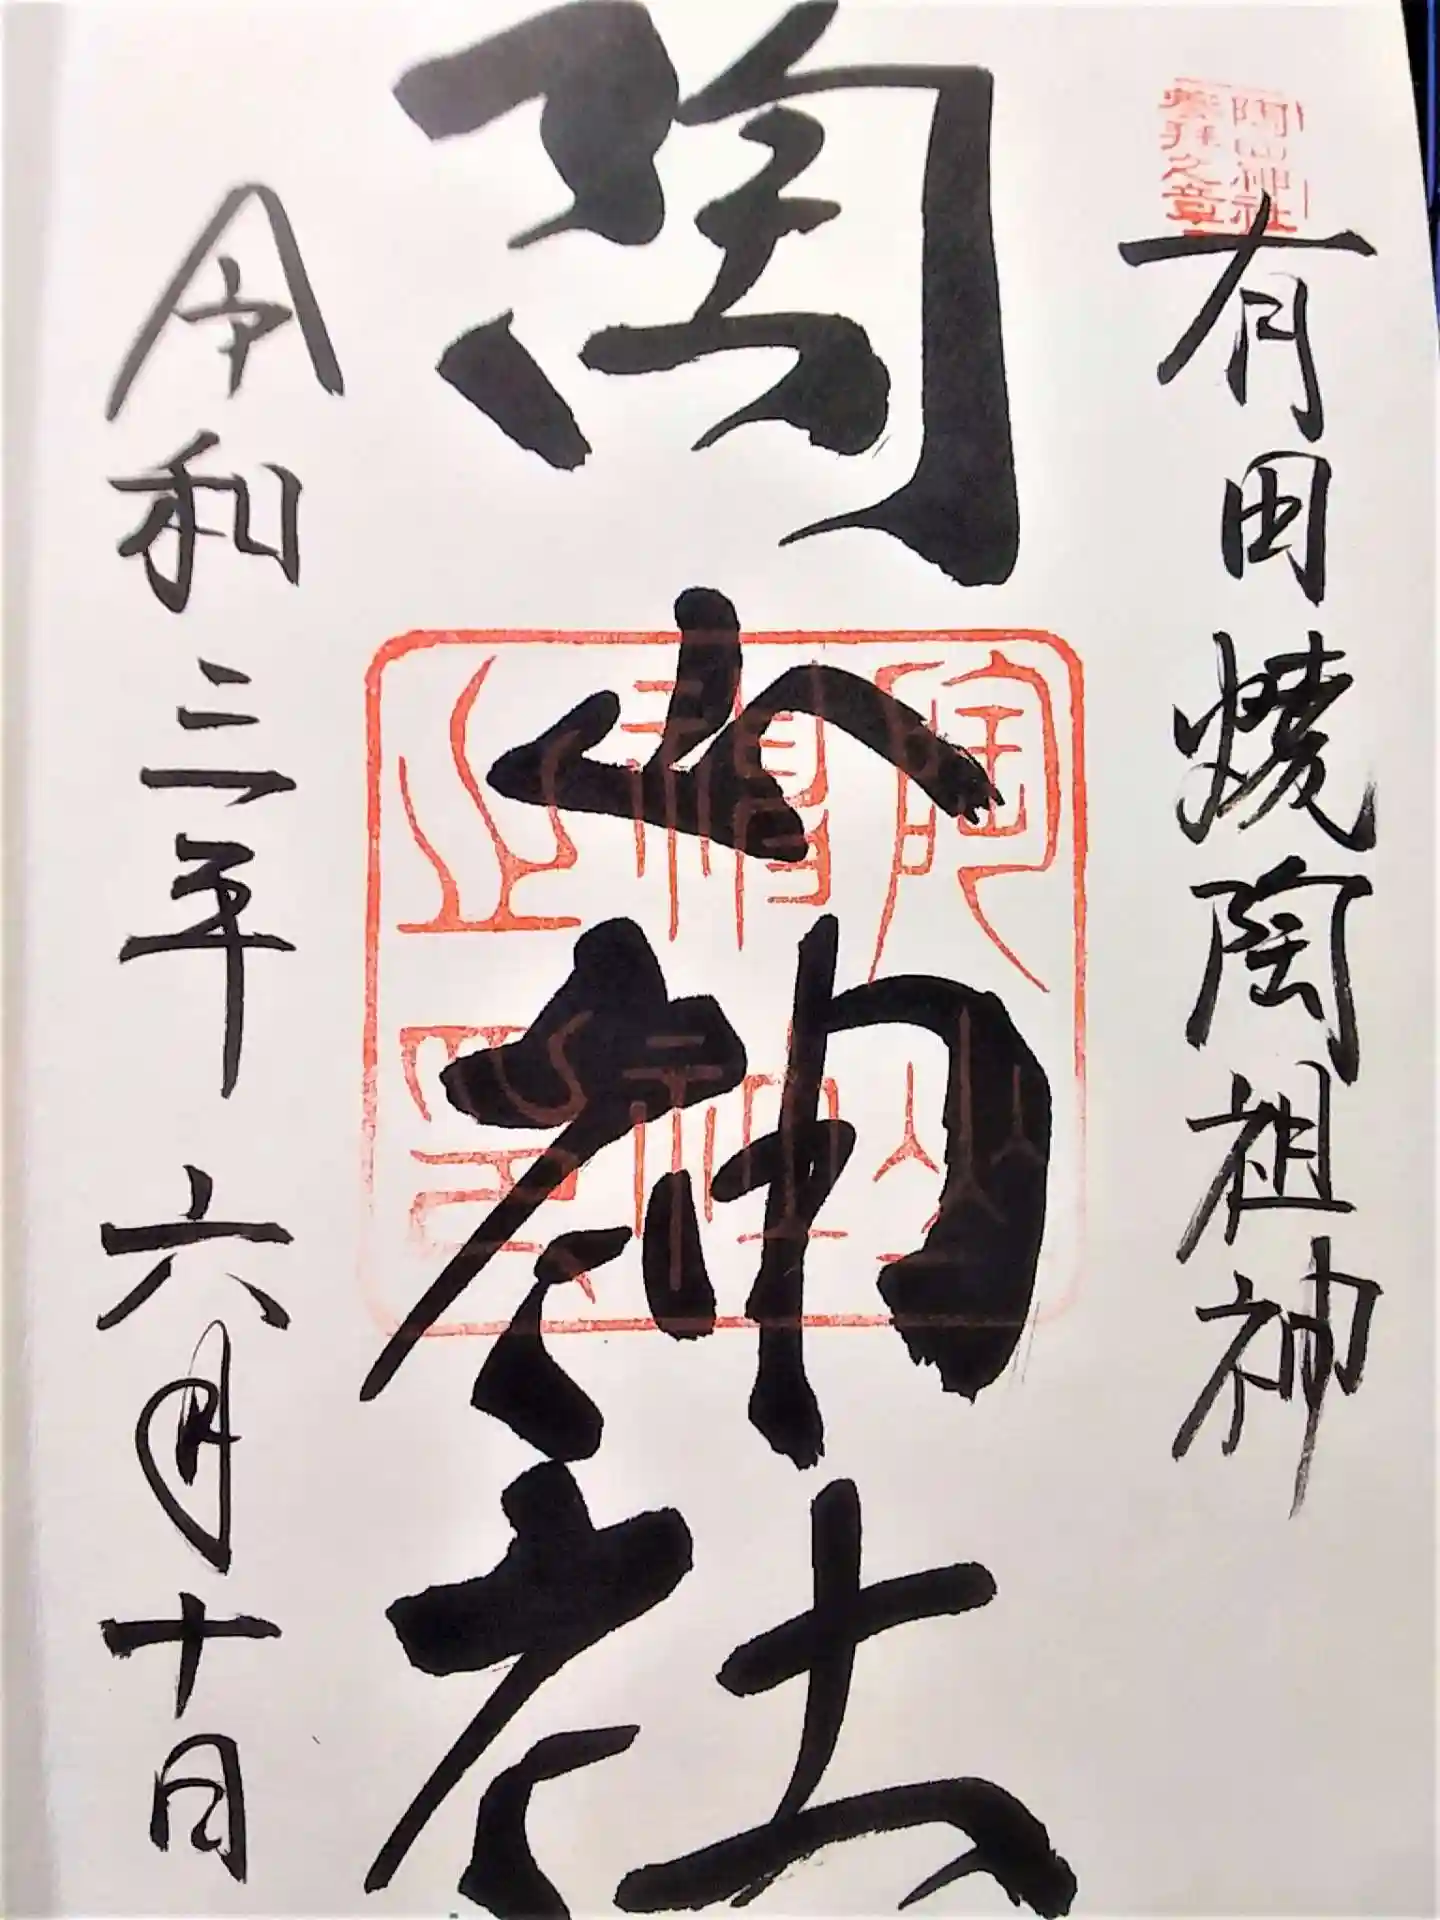 陶山神社
参拝之章
有田焼陶祖神
陶山神社
陶山
稲神
之印
令和三年六月十日